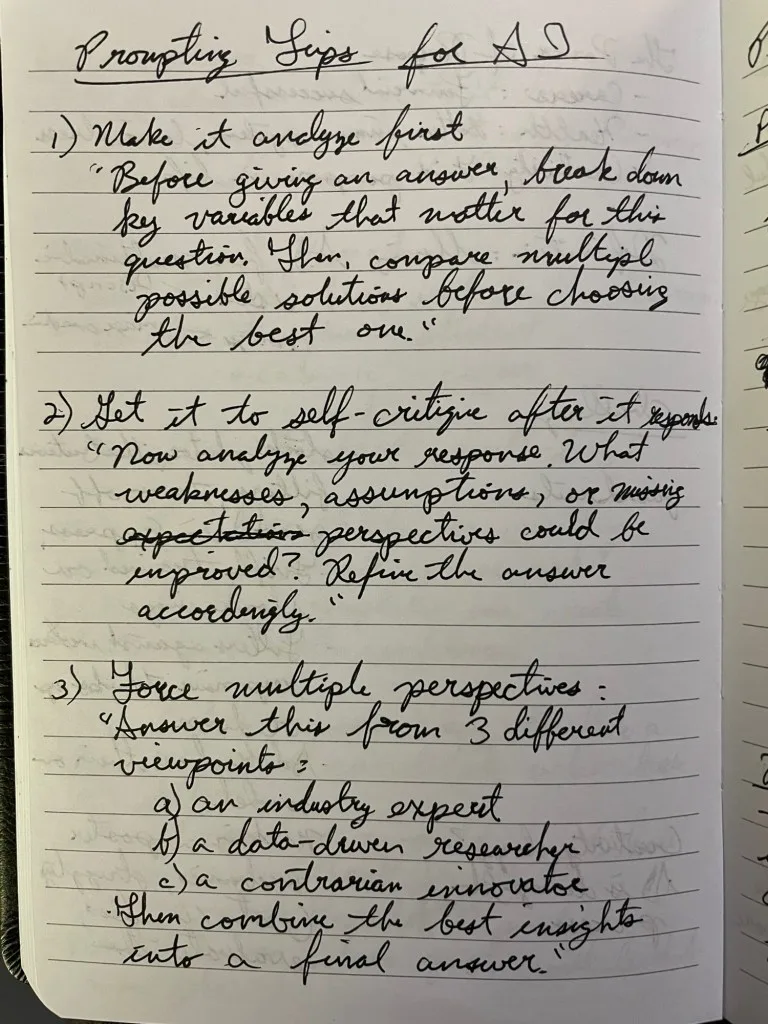 Prompting Tips for AI
1) Make it analyze first
"Before giving an answer, break down
key variables that matter for this
question. Then, compare multipl
possible solutions before choosing
the best one."
2) Get it to self-critique after it responds:
"Now analyze your response. What
weaknesses, assumptions, or missing
expectations perspectives could be
improved? Refine the answer
accordingly."
3) Force multiple perspectives:
"Answer this from 3 different
viewpoints:
a) an industry expert
b) a data-driven researcher
c) a contrarian innovator
Then combine the best insights
into a final answer."